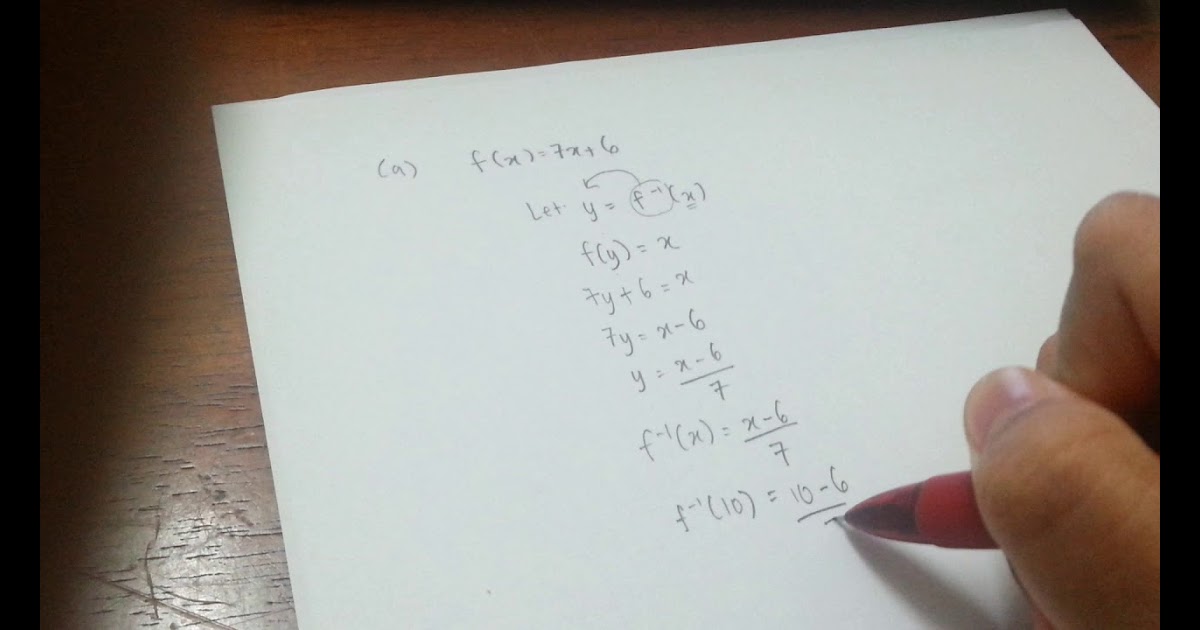 (a) f(x)=7x+6
Let y = f⁻¹(x)
f(y) = x
7y+6 = x
7y = x-6
y = x-6/7
f⁻¹(x) = x-6/7
f⁻¹(10) = 10-6